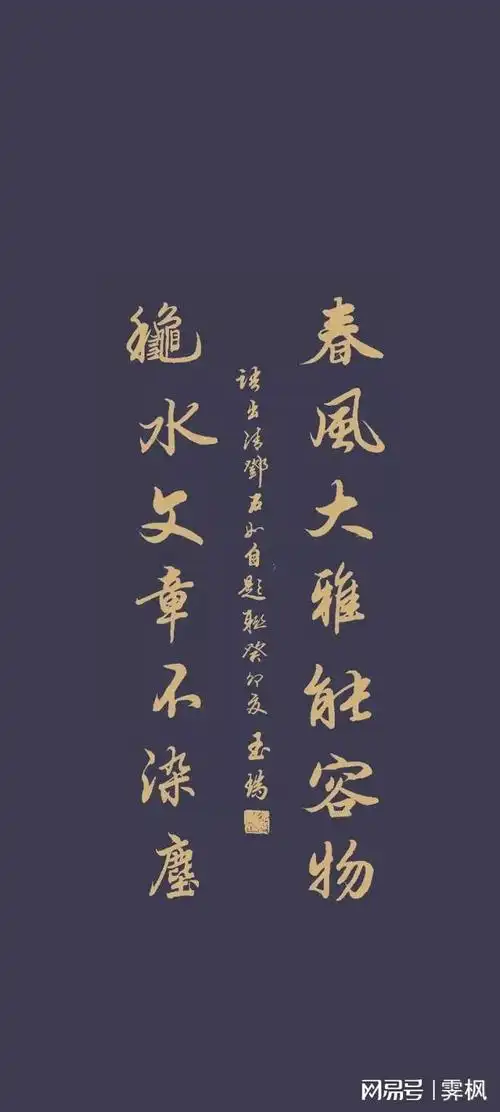 春風大雅能容物
龝水文章不染塵
語出清鄧石如自題聯癸卯夏玉瑞
网易号|霁枫